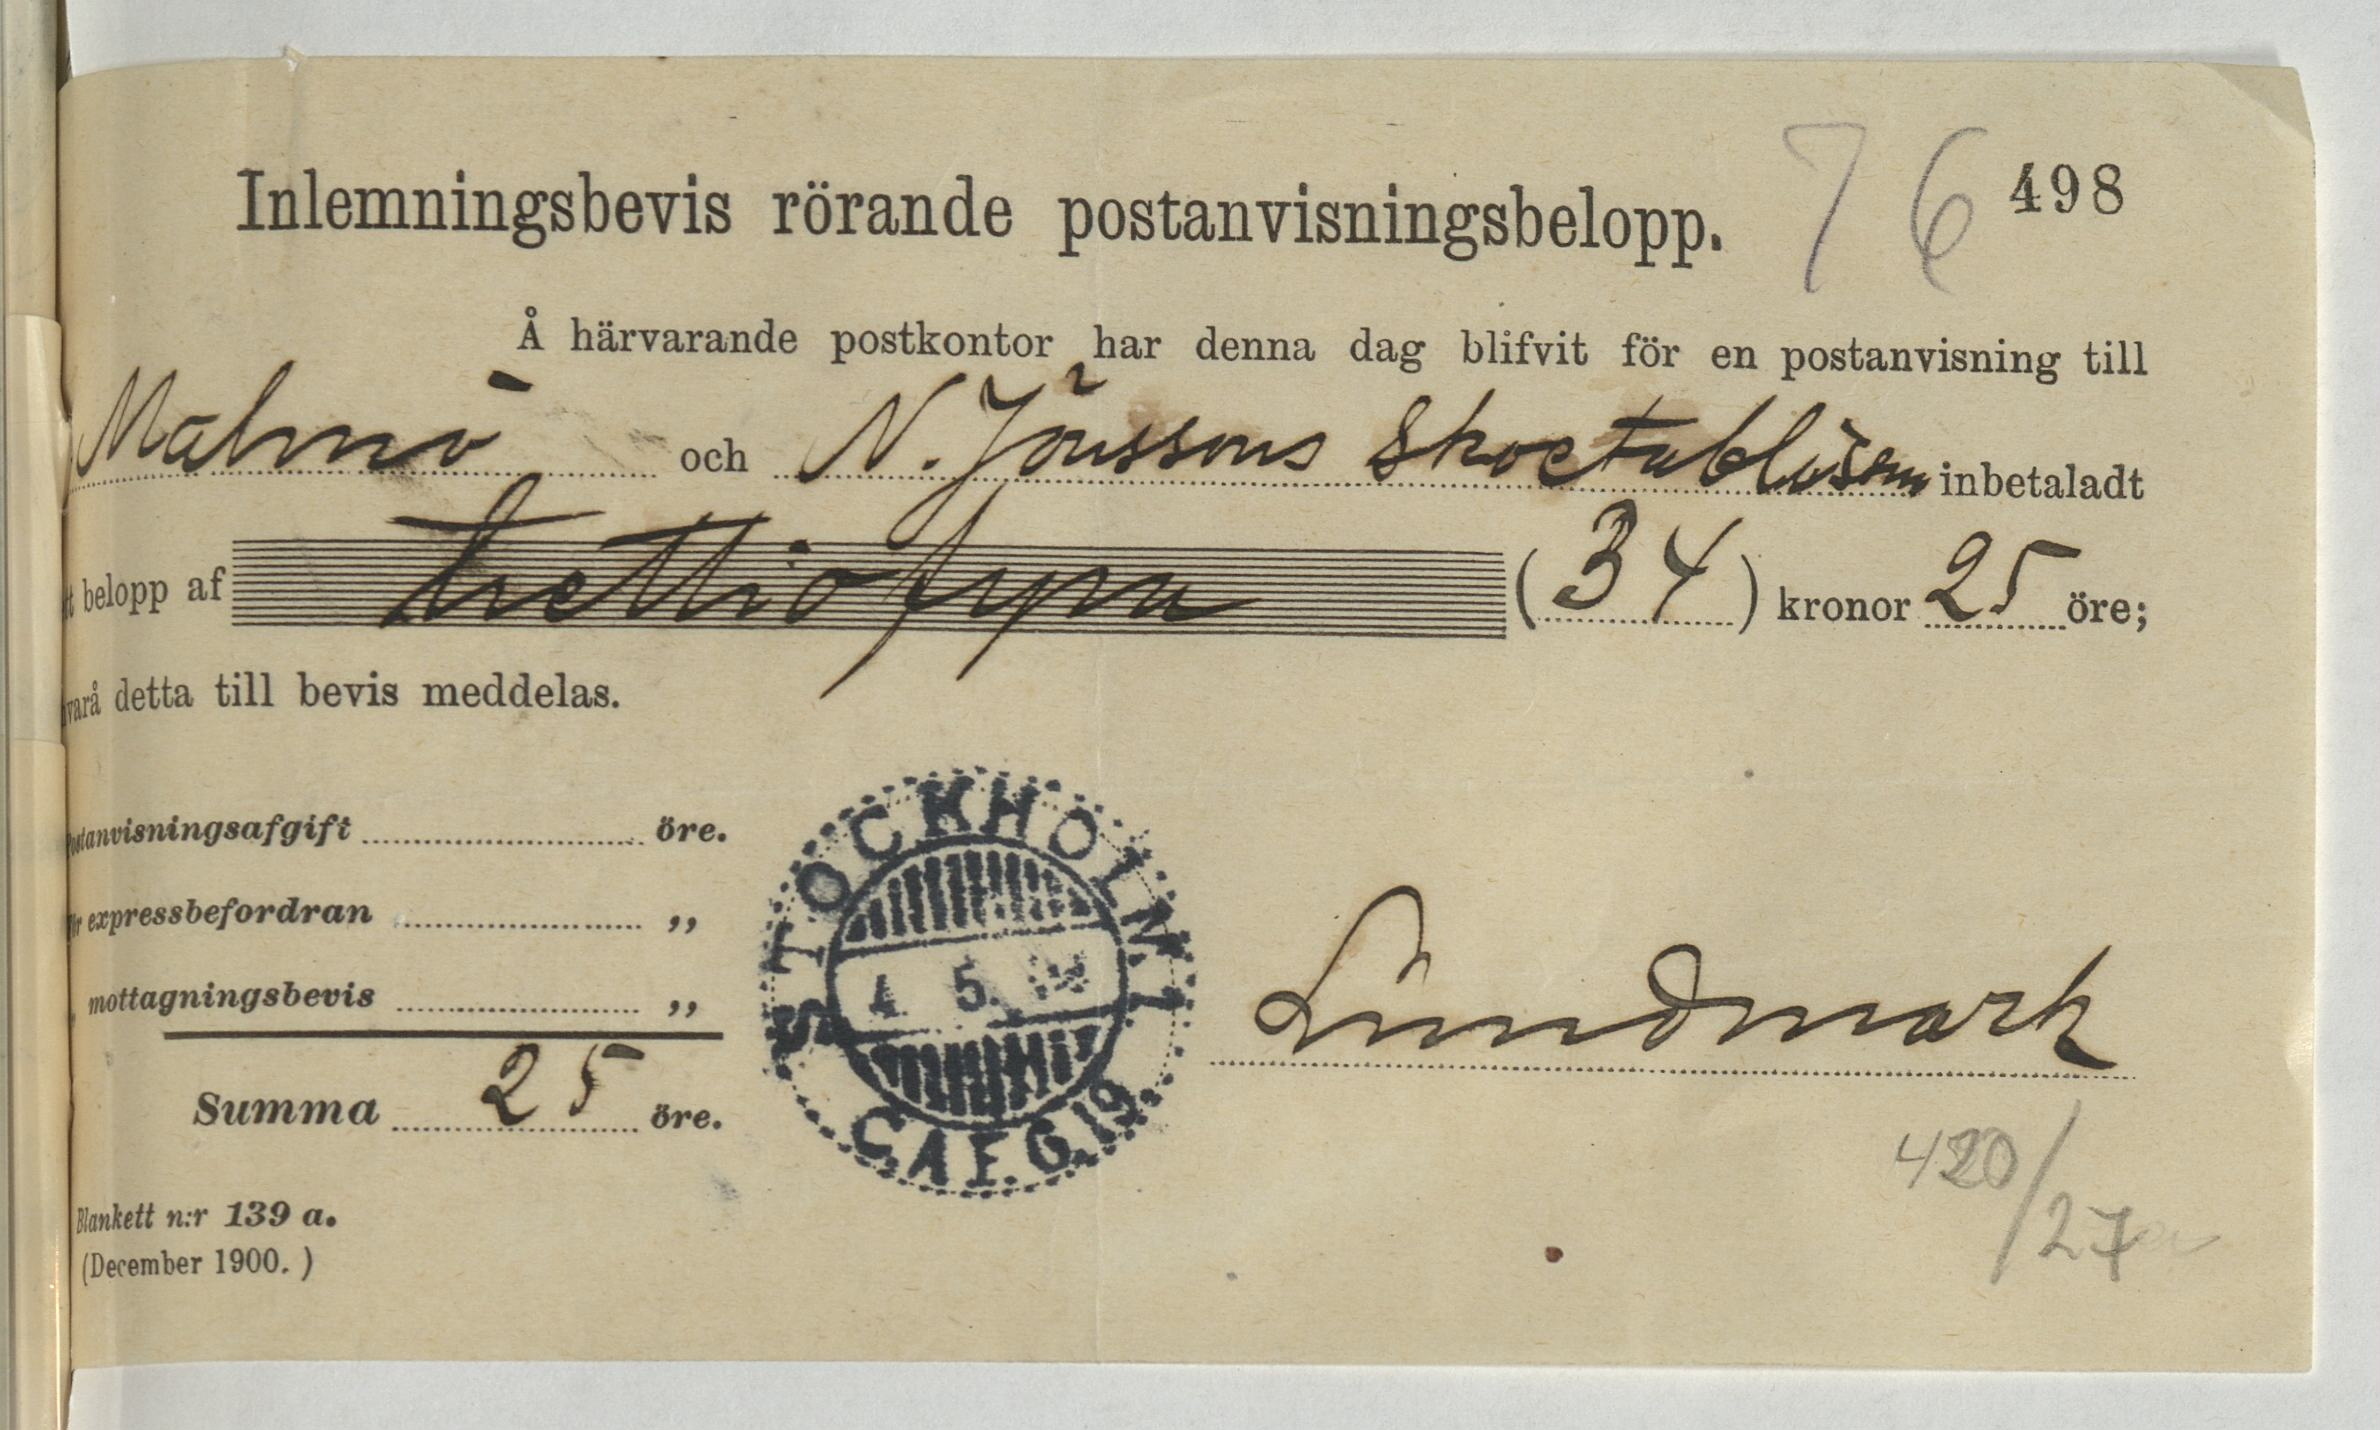 76 498
Inlemningsbevis rörande postanvisningsbelopp.
Å härvarande postkontor har denna dag blifvit för en postanvisning till
Malmö och N. Jönssons Skoetablissem inbetaladt
tt belopp af trettiofyra (34) kronor 25 öre;
varå detta till bevis meddelas.
Postanvisningsafgift öre.
för expressbefordran „
„ mottagningsbevis „
Summa 25 öre.
STOCKHOLM 1
4. 5.
C.A.F.G.19.
Lundmark
420/27
Blankett n:r 139 a.
(December 1900.)